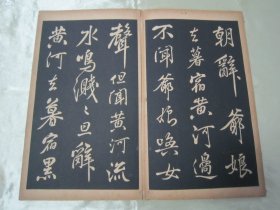 朝辭爺娘
去暮宿黄河邊
不闻爺娘唤女
聲但闻黄河流
水鳴濺〻旦辭
黄河去暮宿黑